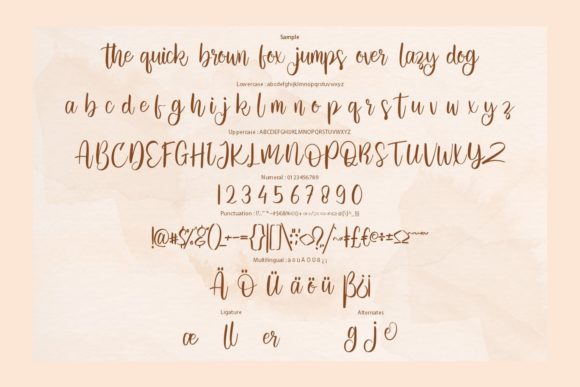 Sample
the quick brown fox jumps over lazy dog
Lowercase : abcdefghijklmnopqrstuvwxyz
a b c d e f g h i j k l m n o p q r s t u v w x y z
Uppercase : ABCDEFGHIJKLMNOPQRSTUVWXYZ
ABCDEFGHIJKLMNOPQRSTUVWXYZ
Numeral : 0123456789
1234567890
Punctuation :
!@#$%&()_+-={}|[]\:;<>?,/
Multilingual : ä ö ü Ä Ö Ü ß ¿ ¡
Ä Ö Ü ä ö ü ß¿¡
Ligature Alternates
æ ll er g j e